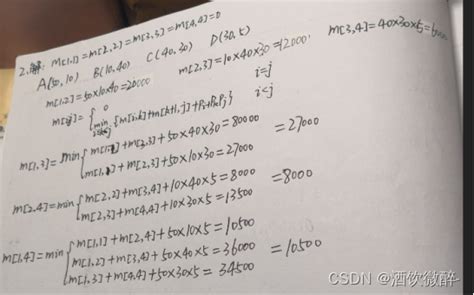 2.解: m[1,1]=m[2,2]=m[3,3]=m[4,4]=0
A(50,10) B(10,40) C(40,30) D(30,5)
m[1,2]=50×10×40=20000 m[2,3]=10×40×30=12000 m[3,4]=40×30×5=6000
m[ij]= { 0 i=j
min {m[i,k]+m[k+1,j]+PiPkPj} i<j
m[1,3]=min { m[1,1]+m[2,3]+50×40×30=80000 =27000
m[1,1]+m[2,3]+50×10×30=27000
m[2,4]=min { m[2,2]+m[3,4]+10×40×5=8000 =8000
m[2,3]+m[4,4]+10×30×5=13500
m[1,4]=min { m[1,1]+m[2,4]+50×10×5=10500 =10500
m[1,2]+m[3,4]+50×40×5=36000
m[1,3]+m[4,4]+50×30×5=34500
CSDN @酒饮微醉-